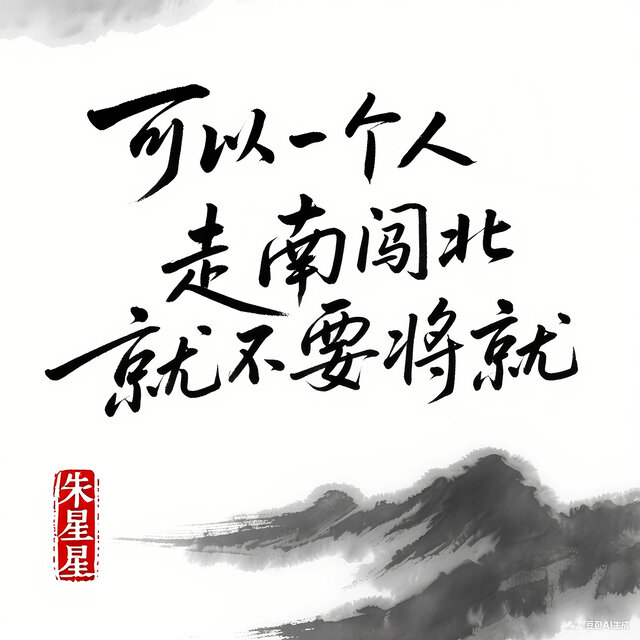 可以一个人
走南闯北
就不要将就
朱星星
豆包AI生成